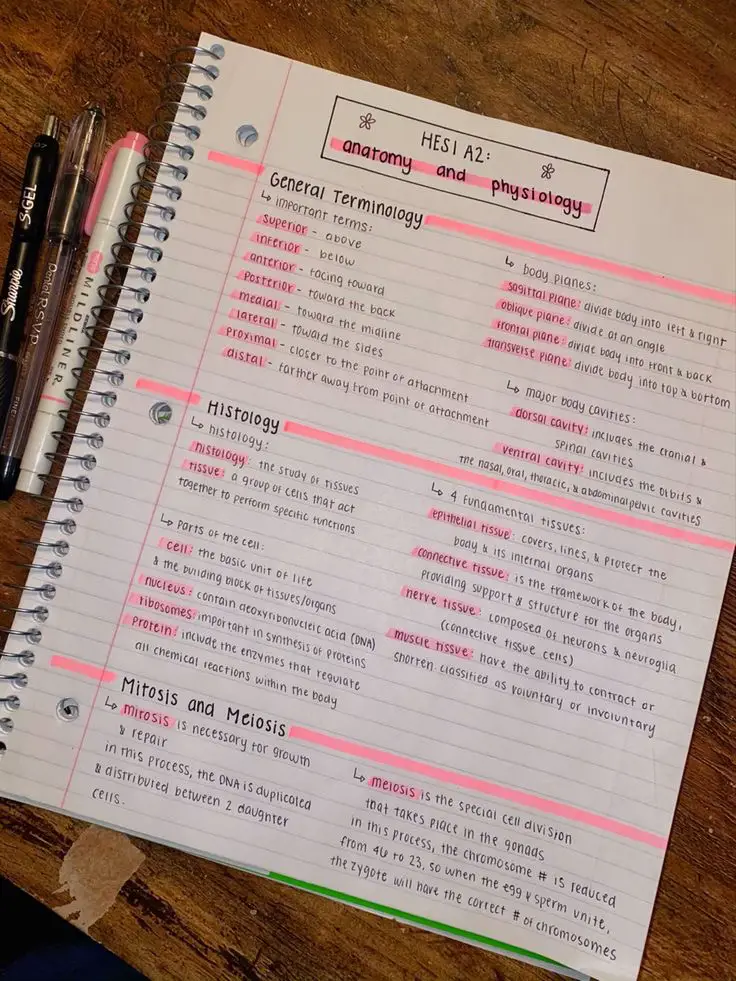 HESI A2:
anatomy and physiology
General Terminology
↳ important terms:
superior - above
inferior - below
anterior - facing toward
posterior - toward the back
medial - toward the midline
lateral - toward the sides
proximal - closer to the point of attachment
distal - farther away from point of attachment
↳ body planes:
sagittal plane: divide body into left & right
oblique plane: divide at an angle
frontal plane: divide body into front & back
transverse plane: divide body into top & bottom
↳ major body cavities:
dorsal cavity: includes the cranial &
spinal cavities
ventral cavity: includes the orbits &
the nasal, oral, thoracic, & abdominalpelvic cavities
Histology
↳ histology:
histology: the study of tissues
tissue: a group of cells that act
together to perform specific functions
↳ parts of the cell:
cell: the basic unit of life
& the building block of tissues/organs
nucleus: contain deoxyribonucleic acid (DNA)
ribosomes: important in synthesis of proteins
protein: include the enzymes that regulate
all chemical reactions within the body
↳ 4 fundamental tissues:
epithelial tissue: covers, lines, & protect the
body & its internal organs
connective tissue: is the framework of the body,
providing support & structure for the organs
nerve tissue: composed of neurons & neuroglia
(connective tissue cells)
muscle tissue: have the ability to contract or
shorten classified as voluntary or involuntary
Mitosis and Meiosis
↳ mitosis is necessary for growth
& repair
in this process, the DNA is duplicated
& distributed between 2 daughter
cells.
↳ meiosis is the special cell division
that takes place in the gonads
in this process, the chromosome # is reduced
from 46 to 23, so when the egg & sperm unite,
the zygote will have the correct # of chromosomes
Sharpie S·GEL
Pentel R.S.V.P.
MILDLINER